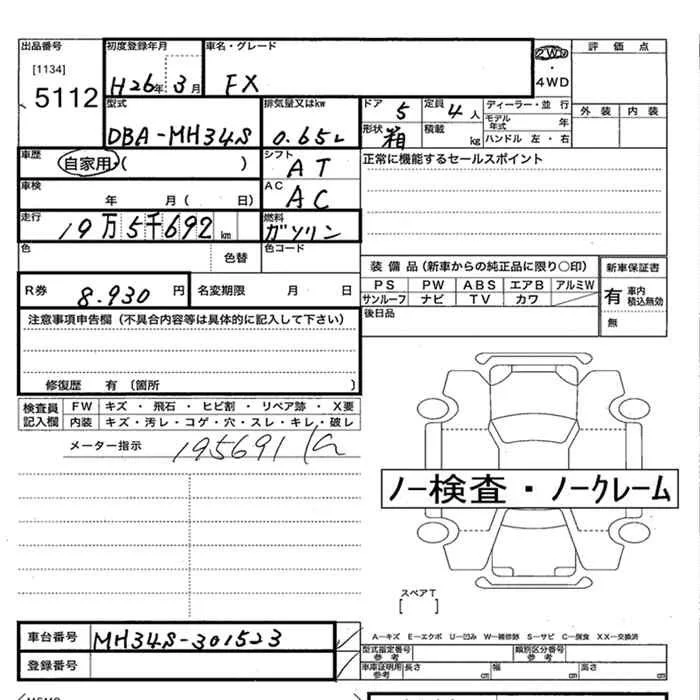 出品番号 初度登録年月 車名・グレード 評価点
[1134] 5112 H26年3月 FX 2WD・4WD
外装 内装
型式 排気量又はkw ドア 5 定員 4人 ディーラー・並行
DBA-MH34S 0.65L 形状 箱 積載 kg モデル年式 年
ハンドル 左・右
車歴 自家用・( ) シフト AT 正常に機能するセールスポイント
車検 年 月( 日) AC AC
走行 19万5千692km 燃料 ガソリン
色 色替 色コード
装備品(新車からの純正品に限り○印) 新車保証書
R券 8.930円 名変期限 月 日
PS PW ABS エアB アルミW 有 車内積込無効
サンルーフ ナビ TV カワ
後日品 無
注意事項申告欄(不具合内容等は具体的に記入して下さい)
修復歴 有〔箇所 〕
検査員記入欄 FW キズ・飛石・ヒビ割・リペア跡・X要
内装 キズ・汚レ・コゲ・穴・スレ・キレ・破レ
メーター指示 195691
ノー検査・ノークレーム
スペアT
[ ]
車台番号 MH34S-301523
A―キズ E―エクボ U―凹み W―補修跡 S―サビ C―腐食 XX―交換済
登録番号
型式指定番号参考 類別区分番号参考
車庫証明用参考 長さ cm 幅 cm 高さ cm
MEMO